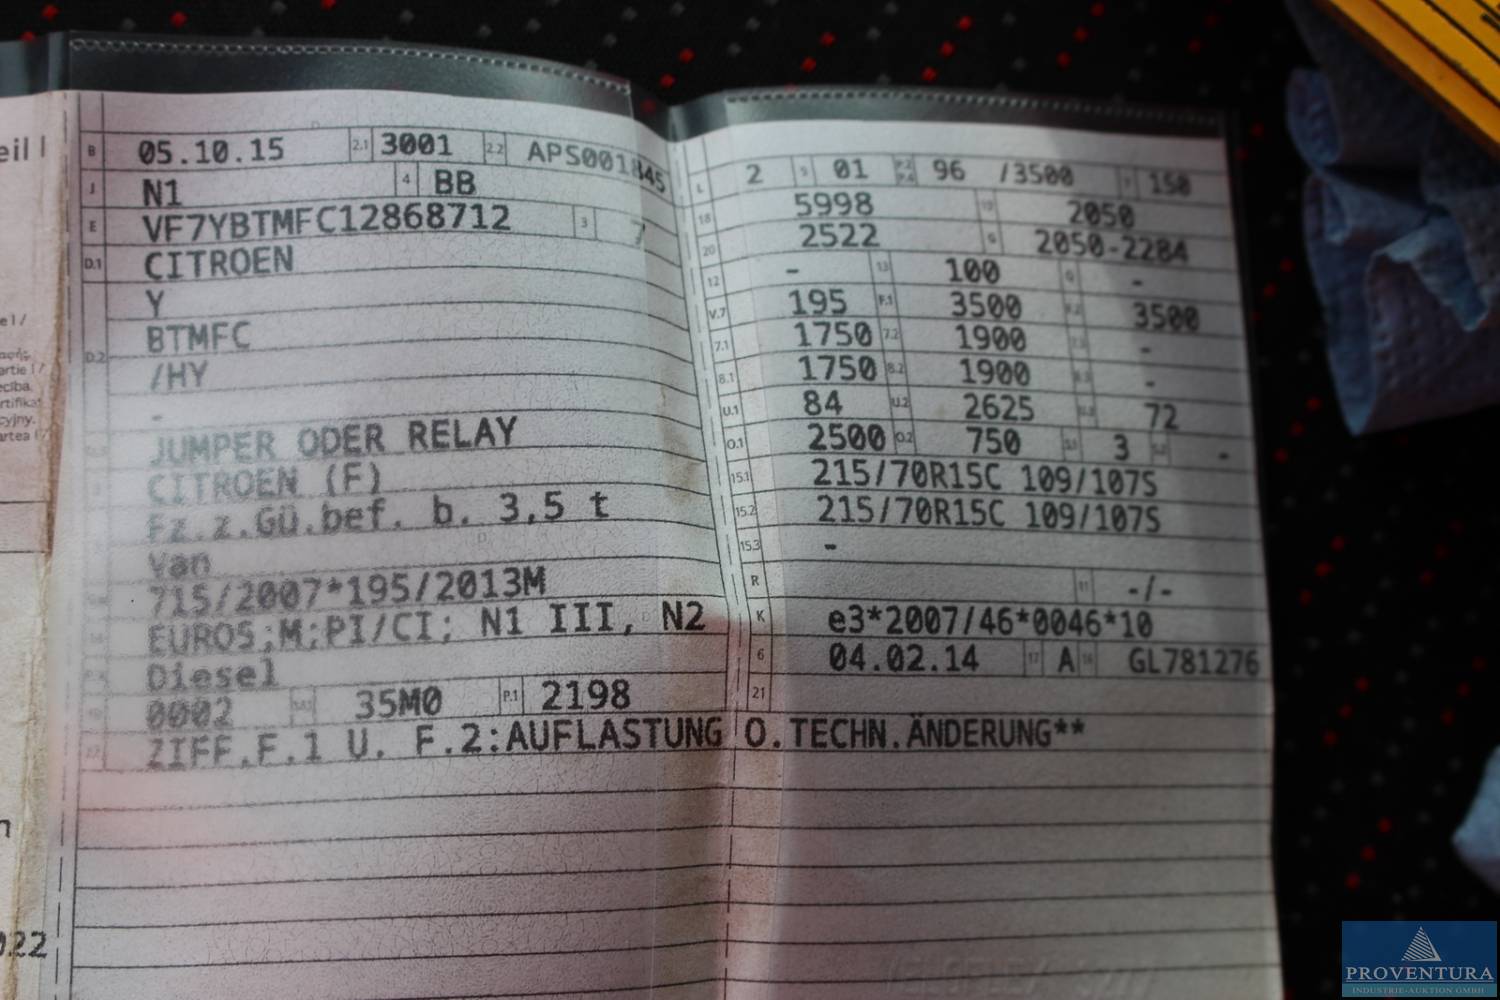 eil I
B 05.10.15 2.1 3001 2.2 APS001845
J N1 4 BB
E VF7YBTMFC12868712 3 7
D.1 CITROEN
Y
D.2 BTMFC
/HY
-
JUMPER ODER RELAY
CITROEN (F)
Fz.z.Gü.bef. b. 3,5 t
Van
715/2007*195/2013M
EURO5;M;PI/CI; N1 III, N2
Diesel
0002 35M0 P.1 2198
ZIFF.F.1 U. F.2:AUFLASTUNG O.TECHN.ÄNDERUNG**
L 2 9 01 P.2 P.4 96 /3500 T 150
18 5998 19 2050
20 2522 G 2050-2284
12 - 13 100 Q -
V.7 195 F.1 3500 F.2 3500
7.1 1750 7.2 1900 7.3 -
8.1 1750 8.2 1900 8.3 -
U.1 84 U.2 2625 U.3 72
O.1 2500 O.2 750 S.1 3 S.2 -
15.1 215/70R15C 109/107S
15.2 215/70R15C 109/107S
15.3 -
R 11 -/-
K e3*2007/46*0046*10
6 04.02.14 17 A 16 GL781276
21
022
PROVENTURA
INDUSTRIE-AUKTION GMBH